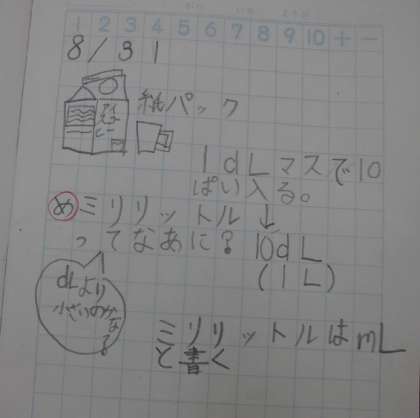 1 2 3 4 5 6 7 8 9 10 + -
8/31
紙パック
1dLマスで10
ぱい入る。
め ミリリットル ↓
ってなあに? 10dL
(1L)
dLより
小さいのかな
ミリリットルはmL
と書く